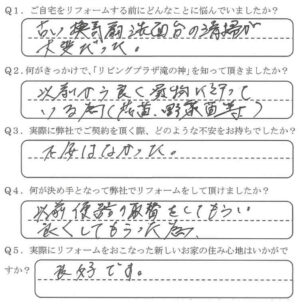 Q1.ご自宅をリフォームする前にどんなことに悩んでいましたか?
古い換気扇洗面台の清掃が
大変だった。
Q2.何がきっかけで、「リビングプラザ滝の神」を知って頂きましたか?
以前から良く買物に行って
いる店(花苗、野菜苗等)
Q3.実際に弊社でご契約を頂く際、どのような不安をお持ちでしたか?
不安はなかった。
Q4.何が決め手となって弊社でリフォームをして頂けましたか?
以前便器の取替をしてもらい
良くしてもらった為、
Q5.実際にリフォームをおこなった新しいお家の住み心地はいかがで
すか?
良好です。